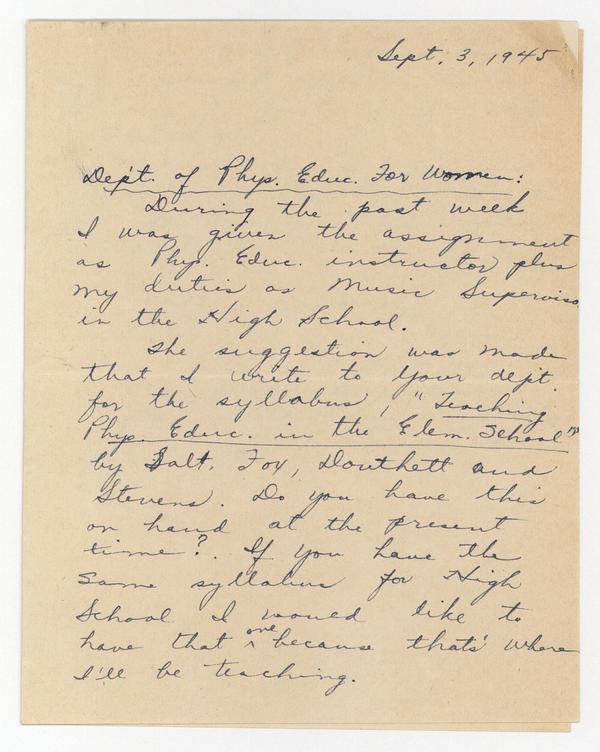 Sept. 3, 1945
Dep't. of Phys. Educ. For Women:
During the past week
I was given the assignment
as Phys. Educ. instructor plus
my duties as Music Supervisor
in the High School.
The suggestion was made
that I write to your dept.
for the syllabus, "Teaching
Phys. Educ. in the Elem. School"
by Salt, Fox, Douthett and
Stevens. Do you have this
on hand at the present
time? If you have the
same syllabus for High
School I would like to
have that one because that's where
I'll be teaching.